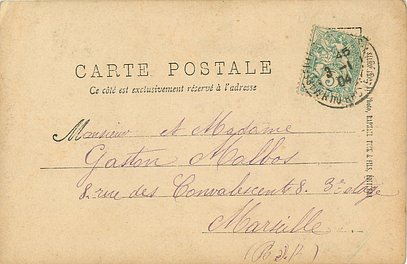 CARTE POSTALE
Ce côté est exclusivement réservé à l'adresse
Monsieur et Madame
Gaston Malbos
8 rue des Convalescents 8. 3e étage
Marseille
(B. d. R)
3 -1
04